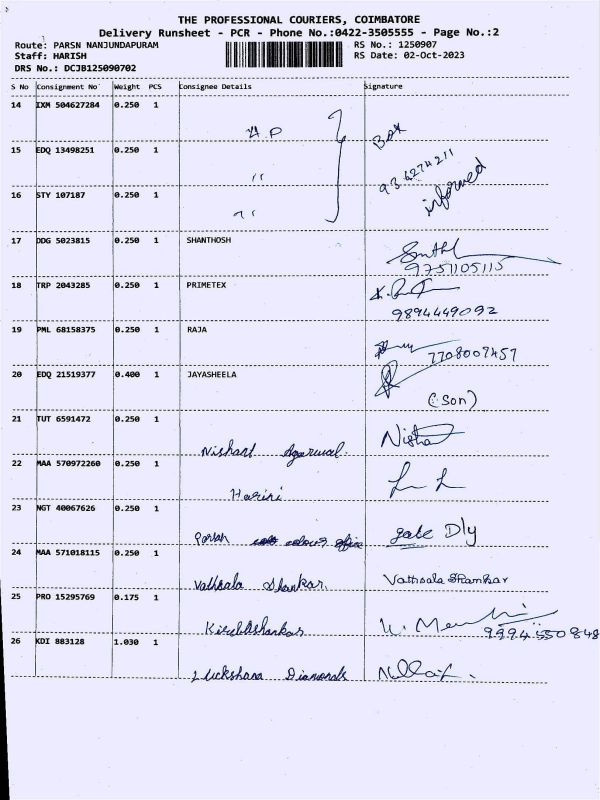 THE PROFESSIONAL COURIERS, COIMBATORE
Delivery Runsheet - PCR - Phone No.:0422-3505555 - Page No.:2
Route: PARSN NANJUNDAPURAM RS No.: 1250907
Staff: HARISH RS Date: 02-Oct-2023
DRS No.: DCJB125090702
S No Consignment No Weight PCS Consignee Details Signature
14 IXM 504627284 0.250 1
Box
15 EDQ 13498251 0.250 1
936274211
informed
16 STY 107187 0.250 1
17 DDG 5023815 0.250 1 SHANTHOSH
9751105115
18 TRP 2043285 0.250 1 PRIMETEX
9894449092
19 PML 68158375 0.250 1 RAJA
7708007457
20 EDQ 21519377 0.400 1 JAYASHEELA
(Son)
21 TUT 6591472 0.250 1
Nishant Agarwal. Nisha
22 MAA 570972260 0.250 1
Harini
23 NGT 40067626 0.250 1
Parsn colours office gate Dly
24 MAA 571018115 0.250 1
Vathsala Shankar. Vathsala Shankar
25 PRO 15295769 0.175 1
Kirubashankar 9994550848
26 KDI 883128 1.030 1
Luckshana Diamonds